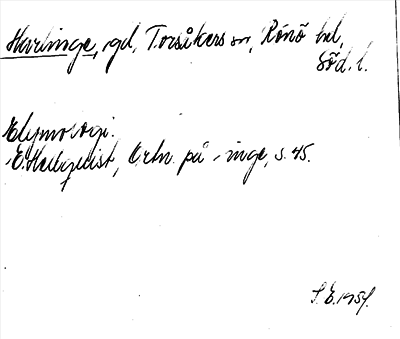 Harlinge, gd, Torsåkers sn, Rönö hd,
Söd. l.
Etymologi.
E. Hellquist, Ortn. på -inge, s. 45.
S. E. 1951.